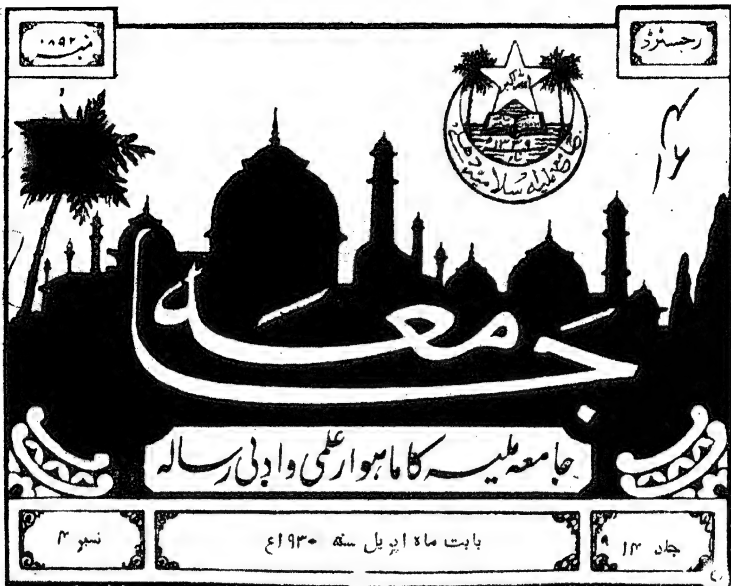 رجسٹرڈ
نمبر ۰۸۹۲
۱۳۳۹
جامعہ ملیہ اسلامیہ دھلی
جامعہ
جامعہ ملیہ کا ماہوار علمی و ادبی رسالہ
جلد ۱۴
بابت ماہ اپریل سنہ ۱۹۳۰ع
نمبر ۴